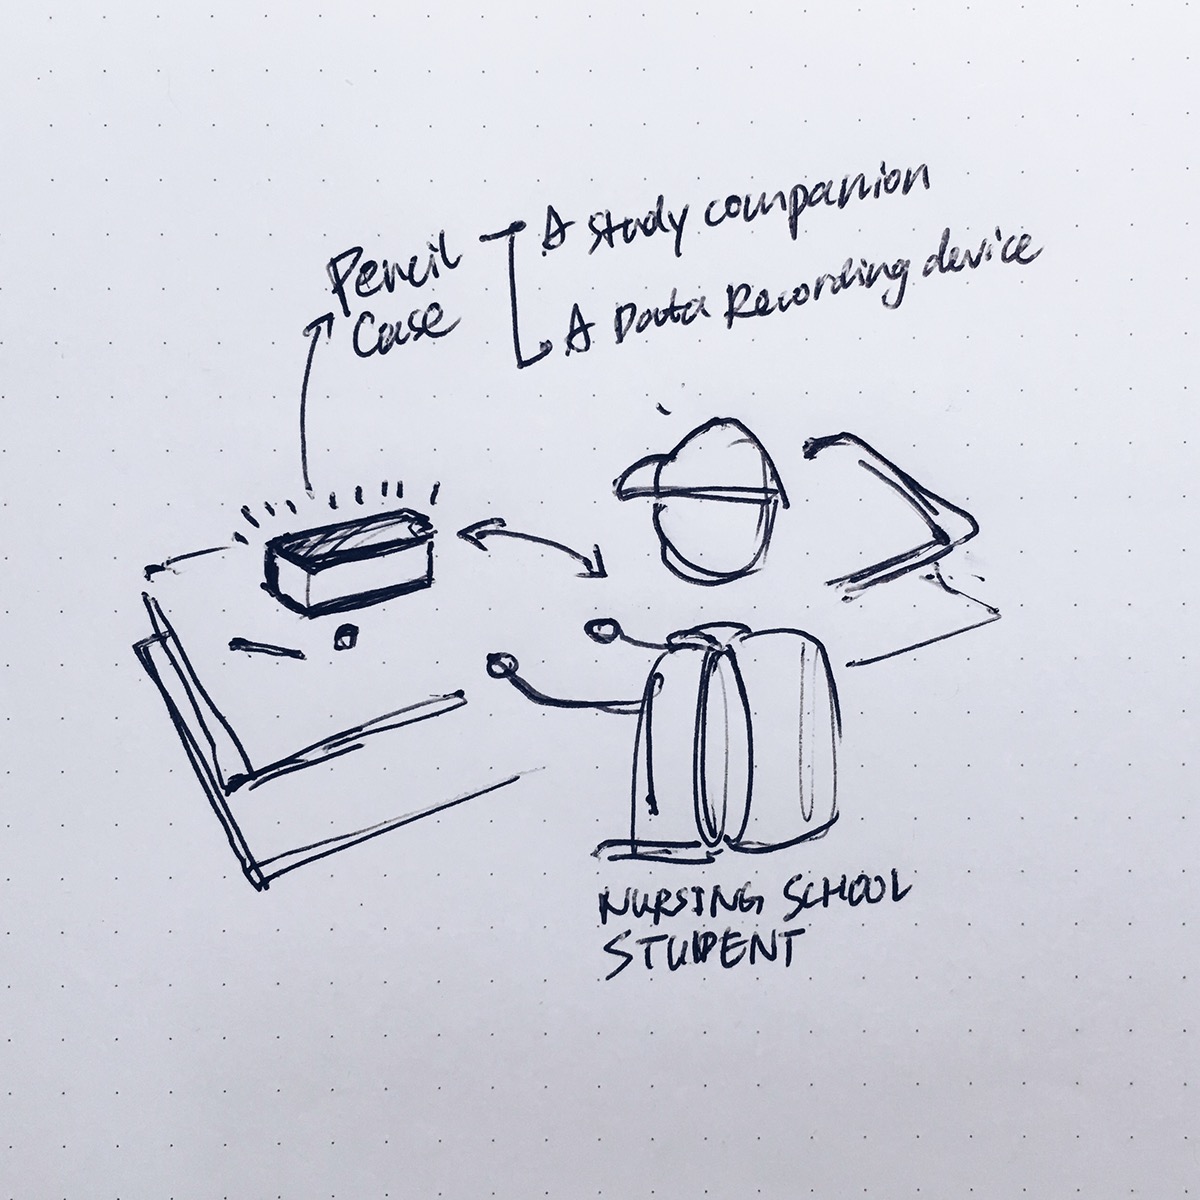 Pencil
Case
A study companion
A Data Recording device
NURSING SCHOOL
STUDENT